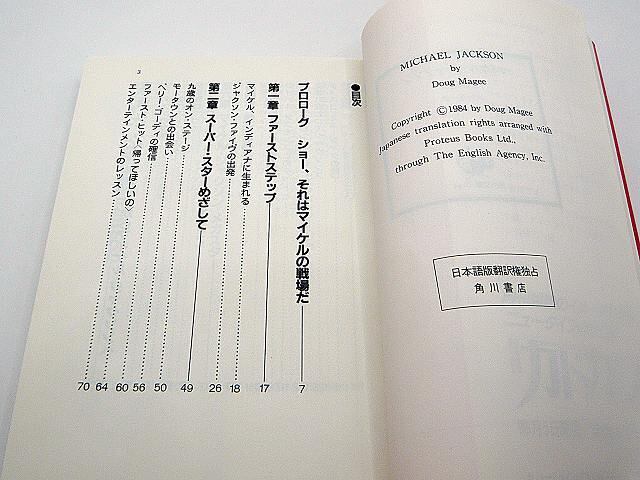 MICHAEL JACKSON
by
Doug Magee
Copyright ©1984 by Doug Magee
Japanese translation rights arranged with
Proteus Books Ltd.,
through The English Agency, Inc.
日本語版翻訳権独占
角川書店
●目次
プロローグ ショー、それはマイケルの戦場だ 7
第一章 ファーストステップ 17
マイケル、インディアナに生まれる 18
ジャクソン・ファイヴの出発 26
第二章 スーパー・スターめざして 49
九歳のオン・ステージ 50
モータウンとの出会い 56
ベリー・ゴーディの確信 60
ファースト・ヒット〈帰ってほしいの〉 64
エンターテインメントのレッスン 70
3